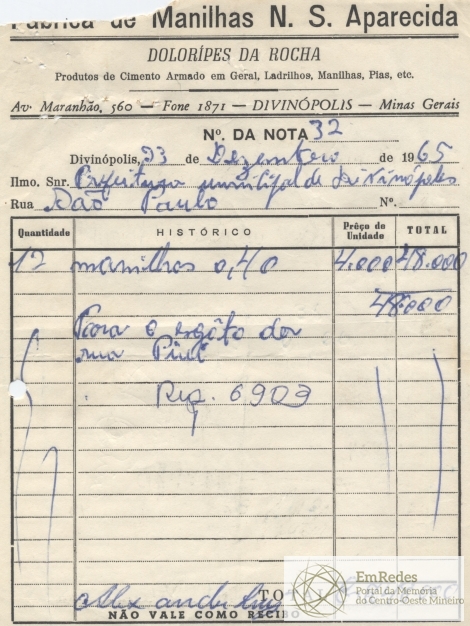 Fábrica de Manilhas N. S. Aparecida
DOLORÍPES DA ROCHA
Produtos de Cimento Armado em Geral, Ladrilhos, Manilhas, Pias, etc.
Av. Maranhão, 560 — Fone 1871 — DIVINÓPOLIS — Minas Gerais
Nº. DA NOTA 32
Divinópolis, 23 de Dezembro de 1965
Ilmo. Snr. Prefeitura municipal de Divinópolis
Rua São Paulo Nº.
Quantidade HISTÓRICO Prêço de Unidade TOTAL
12 manilhas 0,40 4.000 48.000
48.000
Para o esgôto da
rua Piuí
Req. 6903
Alexandre
TO
NÃO VALE COMO RECIBO
EmRedes
Portal da Memória
do Centro-Oeste Mineiro